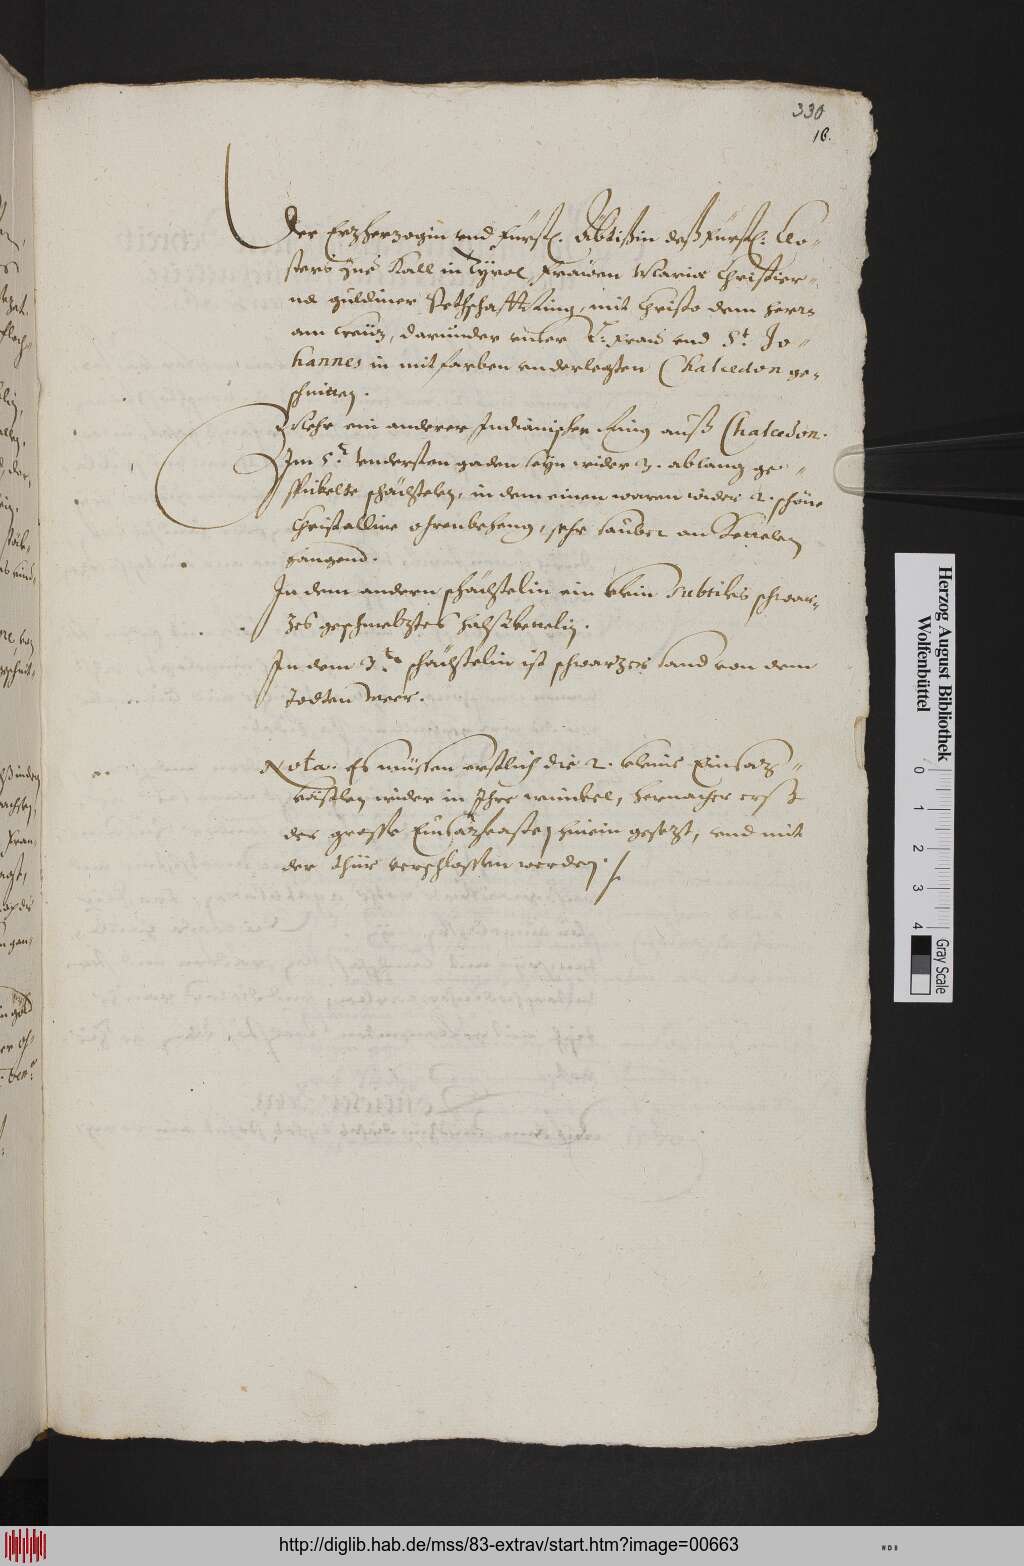 330
16.
Der Erzherzogin und Fürstl. Äbtißin deß Fürstl: Clo-
sters zue Hall in Tyrol, Frawen Mariæ Christier-
næ guldiner Pethschafft Ring, mit Christo dem Herrn
am Creüz, darunder unser L: Fraw und St. Jo-
hannes in mit farben underlegten Chalcedon ge-
schnitten.
Mehr ein anderer Indianischer Ring auß Chalcedon.
Im 5.n understen gaden seyn wider 3. ablang ge-
schachtelen, in dem einen waren wider 2. schöne
Christalline ohrenbeheng, sehr sauber an Kettelen
hangend.
In dem andern schächtelin ein klein subtiles schwar-
zes geschmeltztes halßkettelin.
In dem 3.ten schächtelin ist schwartzes sand von dem
Todten Meer.
Nota: Es müssen erstlich die 2. kleine Einsaz-
kästlen wider in Ihre winkel, hernacher erst
der grosse Einsazkasten hinein gesezt, und mit
der thür verschlossen werden.
Herzog August Bibliothek
Wolfenbüttel
0 1 2 3 4
Gray Scale
http://diglib.hab.de/mss/83-extrav/start.htm?image=00663